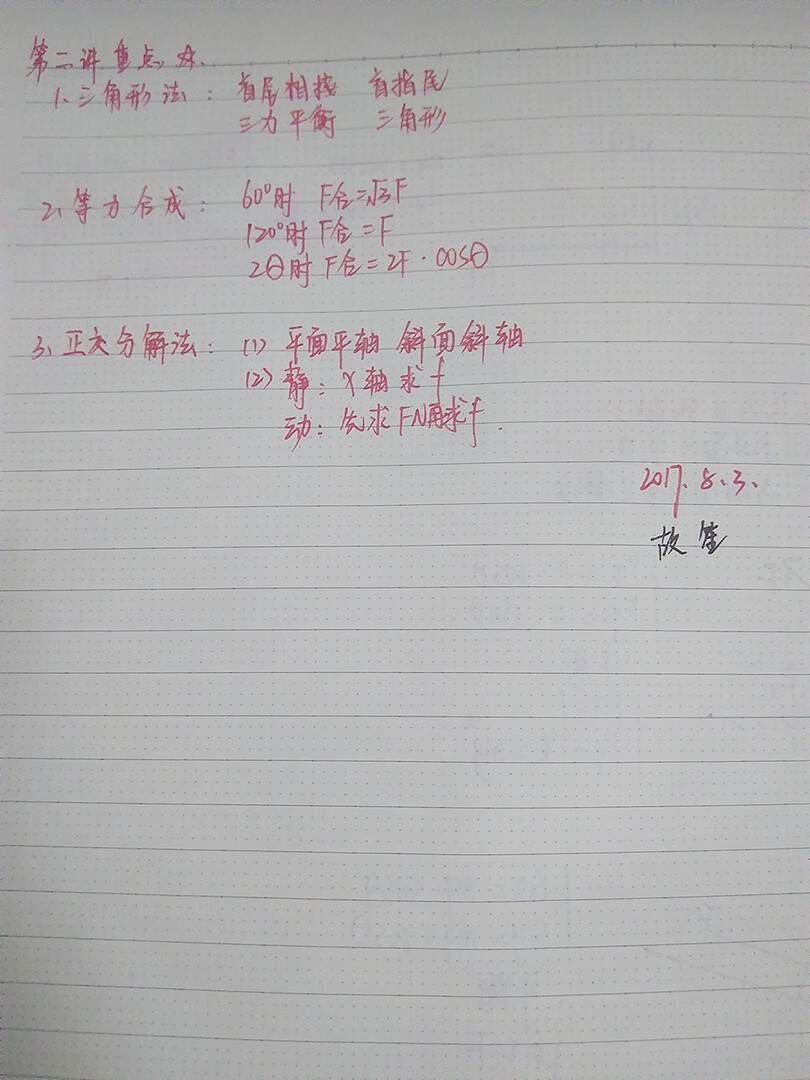 第二讲重点☆.
1、三角形法：首尾相接 首指尾
三力平衡 三角形
2、等力合成：60°时 F合=√3F
120°时 F合=F
2θ时 F合=2F·cosθ
3、正交分解法：(1) 平面平轴 斜面斜轴
(2) 静：X轴求f
动：先求FN再求f.
2017.8.3.
故笙